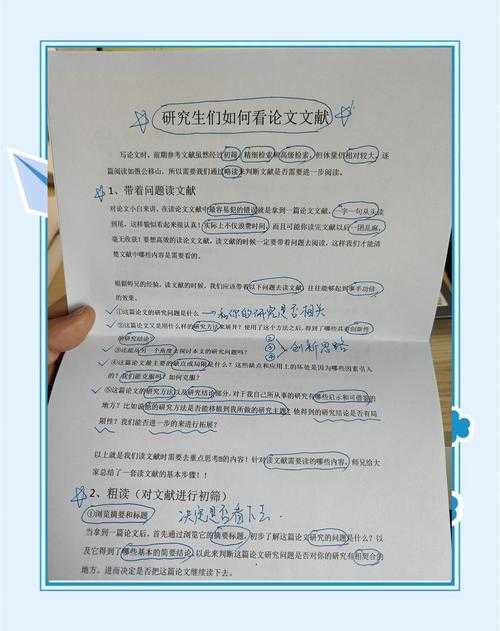 研究生们如何看论文文献
写论文时，前期参考文献虽然经过初筛，精细检索和高级检索，但体量仍相对较大，逐
篇阅读如愚公移山，所以需要我们通过略读来判断文献是否需要进一步阅读。
1、带着问题读文献
对论文小白来讲，在读论文文献中最容易犯的错误就是拿到一篇论文文献，一字一句从头读
到尾，这样貌似看起来很认真！实际上不仅浪费时间，而且可能你读完文献以后一团乱麻，
毫无收获！要想高效的读论文文献，读文献的时候一定要带着问题去阅读，这样我们才能清
楚文献中哪些内容是需要看的。
根据师兄的经验，读文献的时候，我们应该带着以下问题去读文献，往往能够起到事半功倍
的效果。
①这篇论文的研究问题是什么 和你的研究是否相关
②这篇论文又是用什么样的研究方法来展开？使用了这个方法之后，得到了哪些具有创新性
的研究结论？
③还能从另一个角度去探讨本文的研究问题吗？ 创新思路
④这篇论文最主要的缺点或局限是什么？这些缺点和应用上的坏处是因为哪些因素引入
的？我们能克服吗？如何克服？
⑤这篇论文的研究方法以及研究结论部分，对于我自己所从事的研究有哪些启示和可借鉴的
地方？比如说他的研究方法是否能移植到我所做的研究主题？他得到的研究结论是否有局
限性？我们能否进一步的来进行拓展？
以上就是我们读文献时需要去重点思考的内容！针对读文献需要读的哪些内容，师兄给大
家总结了一套读文献的基本步骤！！
2、粗读（对文献进行初筛）
①浏览摘要和标题 决定是否看下去.
当拿到一篇论文后，首先通过浏览它的摘要标题，初步了解这篇论文研究的问题是什么？以
及它得到了哪些基本的简要结论，以此来判断这篇论文研究问题是否对你的研究有相契合的
地方。进而决定是否把这篇论文继续读下去。